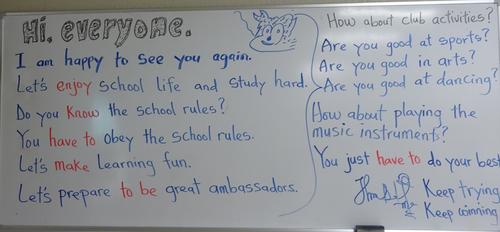 Hi, everyone.
I am happy to see you again.
Let's enjoy school life and study hard.
Do you know the school rules?
You have to obey the school rules.
Let's make learning fun.
Let's prepare to be great ambassadors.
How about club activities?
Are you good at sports?
Are you good in arts?
Are you good at dancing?
How about playing the
music instruments?
You just have to do your best
Keep trying
Keep winning